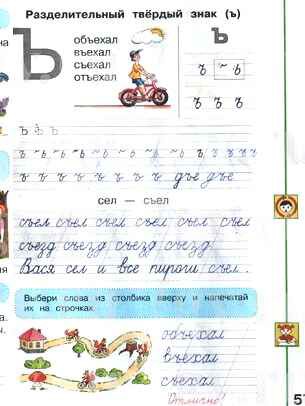 Разделительный твёрдый знак (ъ)
Ъ
объехал
въехал
съехал
отъехал
ъ
ъ ъ
ъ ъ ъ
ъ ъ ъ
ъ ъ ъ ъ ъ ъ ъ дъе дъе
сел — съел
съел съел съел съел съел съел
съезд съезд съезд съезд
Вася сел и все пироги съел.
Выбери слова из столбика вверху и напечатай
их на строчках.
объехал
въехал
съехал
Отлично!
5